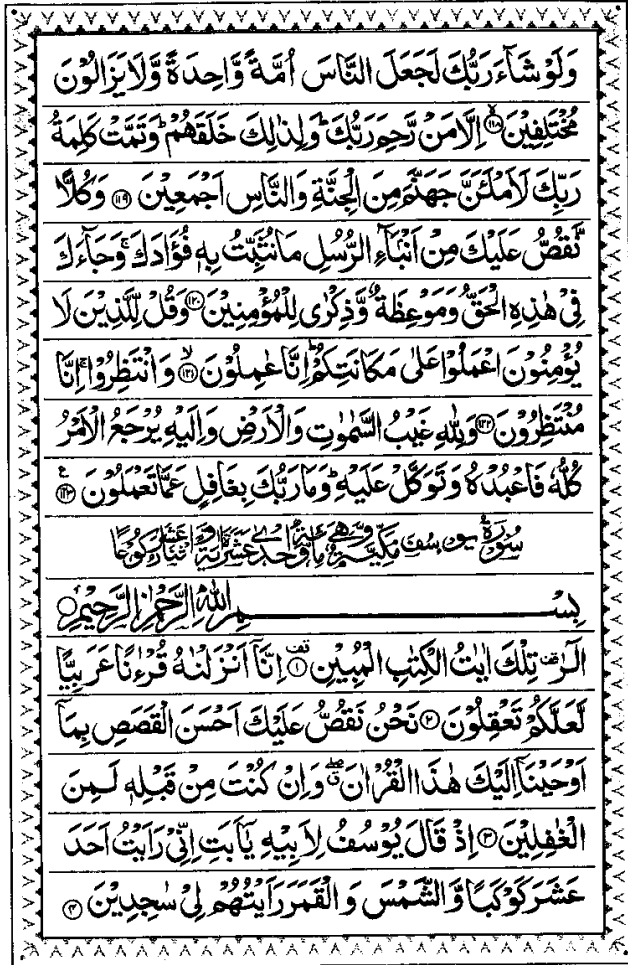 وَلَوْ شَآءَ رَبُّكَ لَجَعَلَ النَّاسَ اُمَّةً وَّاحِدَةً وَّلَا يَزَالُوْنَ
مُخْتَلِفِيْنَ ۙ‏﴿۱۱۸﴾ اِلَّا مَنْ رَّحِمَ رَبُّكَ ؕ وَلِذٰلِكَ خَلَقَهُمْ ؕ وَتَمَّتْ كَلِمَةُ
رَبِّكَ لَاَمْلَئَنَّ جَهَنَّمَ مِنَ الْجِنَّةِ وَالنَّاسِ اَجْمَعِيْنَ ﴿۱۱۹﴾ وَكُلًّا
نَّقُصُّ عَلَيْكَ مِنْ اَنْۢبَآءِ الرُّسُلِ مَا نُثَبِّتُ بِهٖ فُؤَادَكَ ۚ وَجَآءَكَ
فِيْ هٰذِهِ الْحَقُّ وَمَوْعِظَةٌ وَّذِكْرٰى لِلْمُؤْمِنِيْنَ ﴿۱۲۰﴾ وَقُلْ لِّلَّذِيْنَ لَا
يُؤْمِنُوْنَ اعْمَلُوْا عَلٰى مَكَانَتِكُمْ ؕ اِنَّا عٰمِلُوْنَ ۙ﴿۱۲۱﴾ وَانْتَظِرُوْا ۚ اِنَّا
مُنْتَظِرُوْنَ ﴿۱۲۲﴾ وَلِلّٰهِ غَيْبُ السَّمٰوٰتِ وَالْاَرْضِ وَاِلَيْهِ يُرْجَعُ الْاَمْرُ
كُلُّهٗ فَاعْبُدْهُ وَتَوَكَّلْ عَلَيْهِ ؕ وَمَا رَبُّكَ بِغَافِلٍ عَمَّا تَعْمَلُوْنَ ﴿۱۲۳﴾ ع
سُوْرَةُ يُوْسُفَ مَكِّيَّةٌ وَّهِيَ مِائَةٌ وَّاِحْدٰى عَشَرَةَ اٰيَةً وَّاثْنَا عَشَرَ رُكُوْعًا
بِسْمِ اللّٰهِ الرَّحْمٰنِ الرَّحِيْمِ
الٓرٰ ۟ تِلْكَ اٰيٰتُ الْكِتٰبِ الْمُبِيْنِ ﴿۱﴾ اِنَّآ اَنْزَلْنٰهُ قُرْءٰنًا عَرَبِيًّا
لَّعَلَّكُمْ تَعْقِلُوْنَ ﴿۲﴾ نَحْنُ نَقُصُّ عَلَيْكَ اَحْسَنَ الْقَصَصِ بِمَآ
اَوْحَيْنَآ اِلَيْكَ هٰذَا الْقُرْاٰنَ ۖ وَاِنْ كُنْتَ مِنْ قَبْلِهٖ لَمِنَ
الْغٰفِلِيْنَ ﴿۳﴾ اِذْ قَالَ يُوْسُفُ لِاَبِيْهِ يٰٓاَبَتِ اِنِّيْ رَاَيْتُ اَحَدَ
عَشَرَ كَوْكَبًا وَّالشَّمْسَ وَالْقَمَرَ رَاَيْتُهُمْ لِيْ سٰجِدِيْنَ ﴿۴﴾